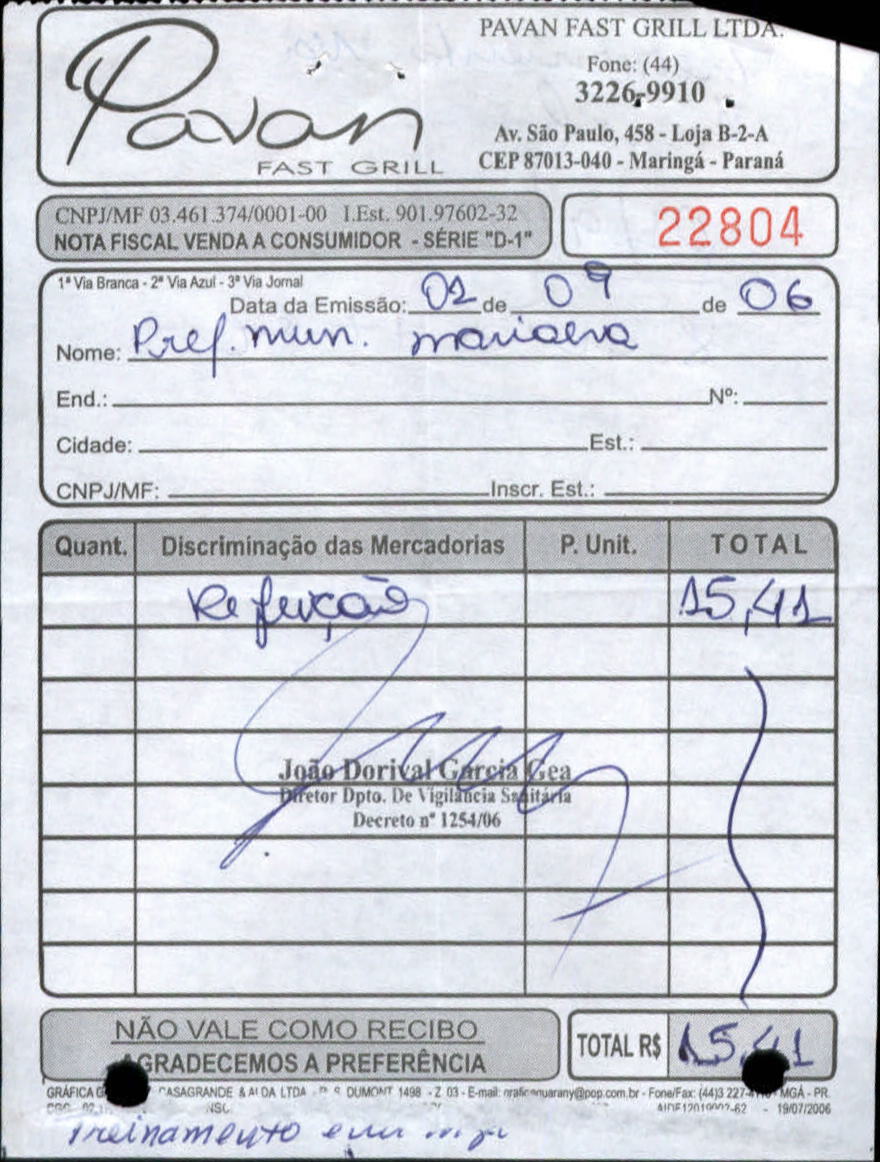 Pavan
FAST GRILL
PAVAN FAST GRILL LTDA.
Fone: (44)
3226-9910
Av. São Paulo, 458 - Loja B-2-A
CEP 87013-040 - Maringá - Paraná
CNPJ/MF 03.461.374/0001-00 I.Est. 901.97602-32
NOTA FISCAL VENDA A CONSUMIDOR - SÉRIE "D-1"
22804
1ª Via Branca - 2ª Via Azul - 3ª Via Jornal
Data da Emissão: 02 de 09 de 06
Nome: Pref. mun. marialva
End.: Nº:
Cidade: Est.:
CNPJ/MF: Inscr. Est.:
Quant. Discriminação das Mercadorias P. Unit. TOTAL
Refeição 15,41
João Dorival Garcia Gea
Diretor Dpto. De Vigilância Sanitária
Decreto nº 1254/06
NÃO VALE COMO RECIBO
AGRADECEMOS A PREFERÊNCIA
TOTAL R$ 15,41
GRÁFICA CASAGRANDE & LTDA DUMONT 1498 - Z 03 - E-mail: @pop.com.br - Fone/Fax: (44)3 227- MGÁ - PR.
- 19/07/2006
treinamento em